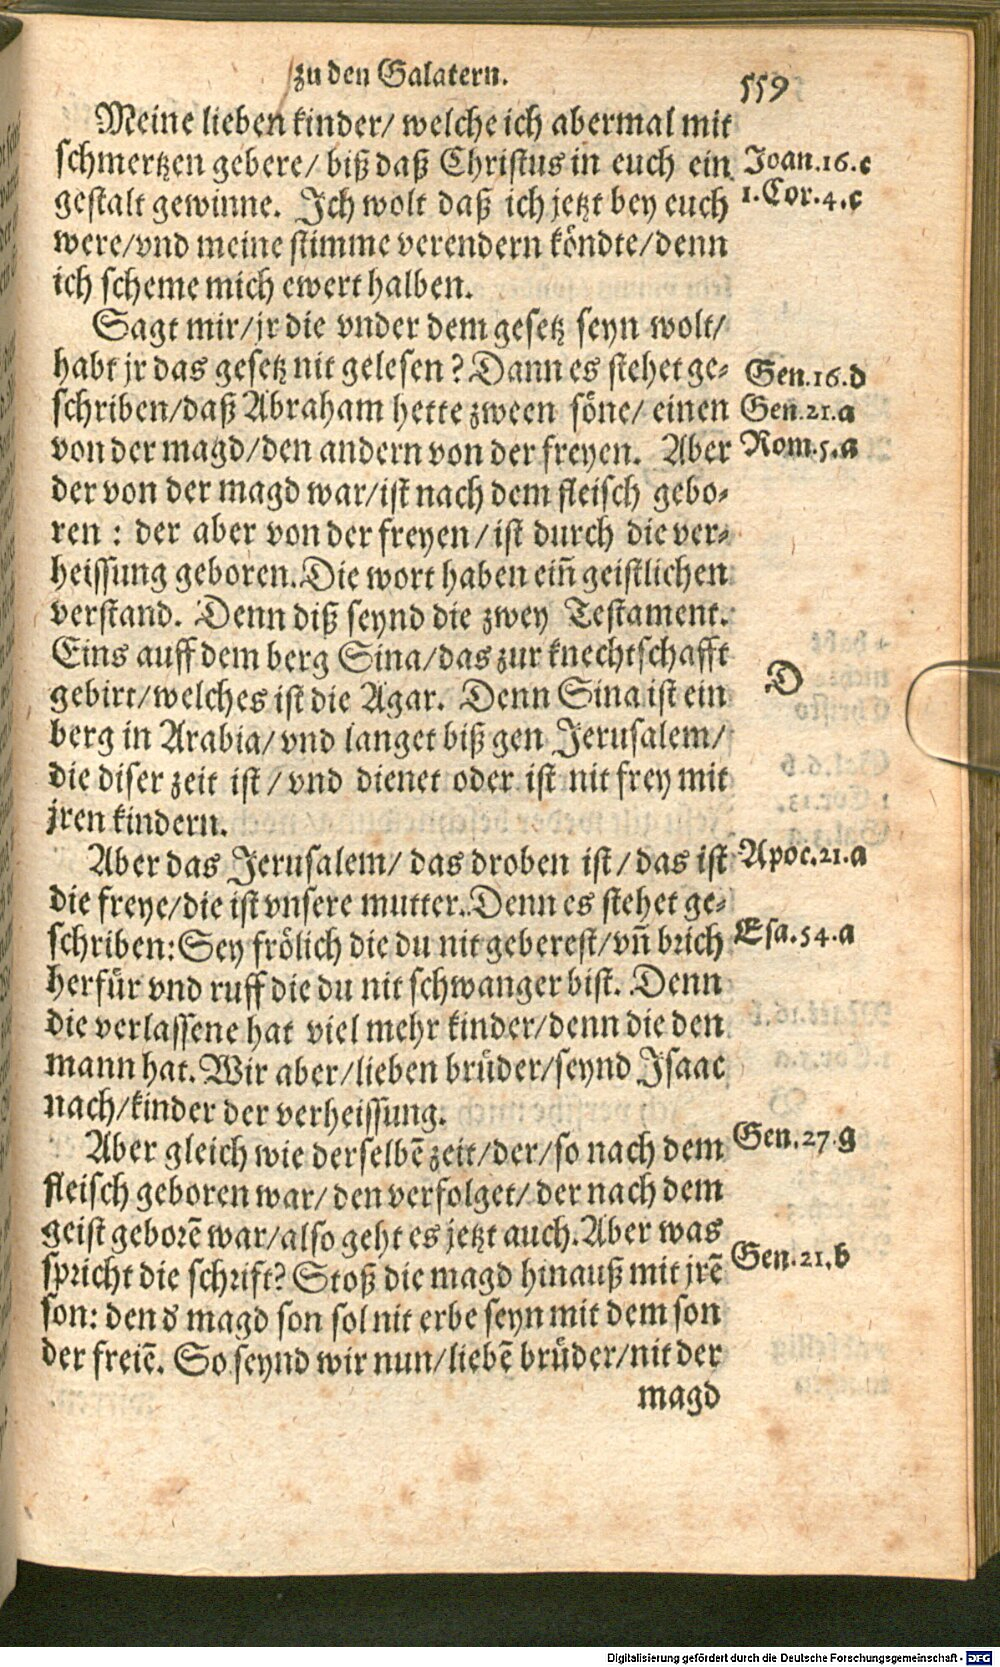 zu den Galatern.
559
Meine lieben kinder/ welche ich abermal mit
schmertzen gebere/ biß daß Christus in euch ein
Joan.16.c
gestalt gewinne. Ich wolt daß ich jetzt bey euch
1.Cor.4.c
were/vnd meine stimme verendern köndte/denn
ich scheme mich ewert halben.
Sagt mir/jr die vnder dem gesetz seyn wolt/
habt jr das gesetz nit gelesen? Dann es stehet ge-
Gen.16.d
schriben/daß Abraham hette zween söne/ einen
Gen.21.a
von der magd/den andern von der freyen. Aber
Rom.5.a
der von der magd war/ist nach dem fleisch gebo-
ren : der aber von der freyen/ist durch die ver-
heissung geboren. Die wort haben eiñ geistlichen
verstand. Denn diß seynd die zwey Testament.
Eins auff dem berg Sina/das zur knechtschafft
gebirt/welches ist die Agar. Denn Sina ist ein
D
berg in Arabia/ vnd langet biß gen Jerusalem/
die diser zeit ist/vnd dienet oder ist nit frey mit
jren kindern.
Aber das Jerusalem/ das droben ist/das ist
Apoc.21.a
die freye/die ist vnsere mutter. Denn es stehet ge-
schriben: Sey frölich die du nit geberest/vñ brich
Esa.54.a
herfür vnd ruff die du nit schwanger bist. Denn
die verlassene hat viel mehr kinder/denn die den
mann hat. Wir aber/lieben brüder/seynd Isaac
nach/kinder der verheissung.
Aber gleich wie derselbẽ zeit/der/so nach dem
Gen.27.g
fleisch geboren war/ den verfolget/ der nach dem
geist geborẽ war/also geht es jetzt auch. Aber was
spricht die schrift? Stoß die magd hinauß mit jrẽ
Gen.21.b
son: den d magd son sol nit erbe seyn mit dem son
der freiẽ. So seynd wir nun/liebẽ brüder/nit der
magd
Digitalisierung gefördert durch die Deutsche Forschungsgemeinschaft - DFG